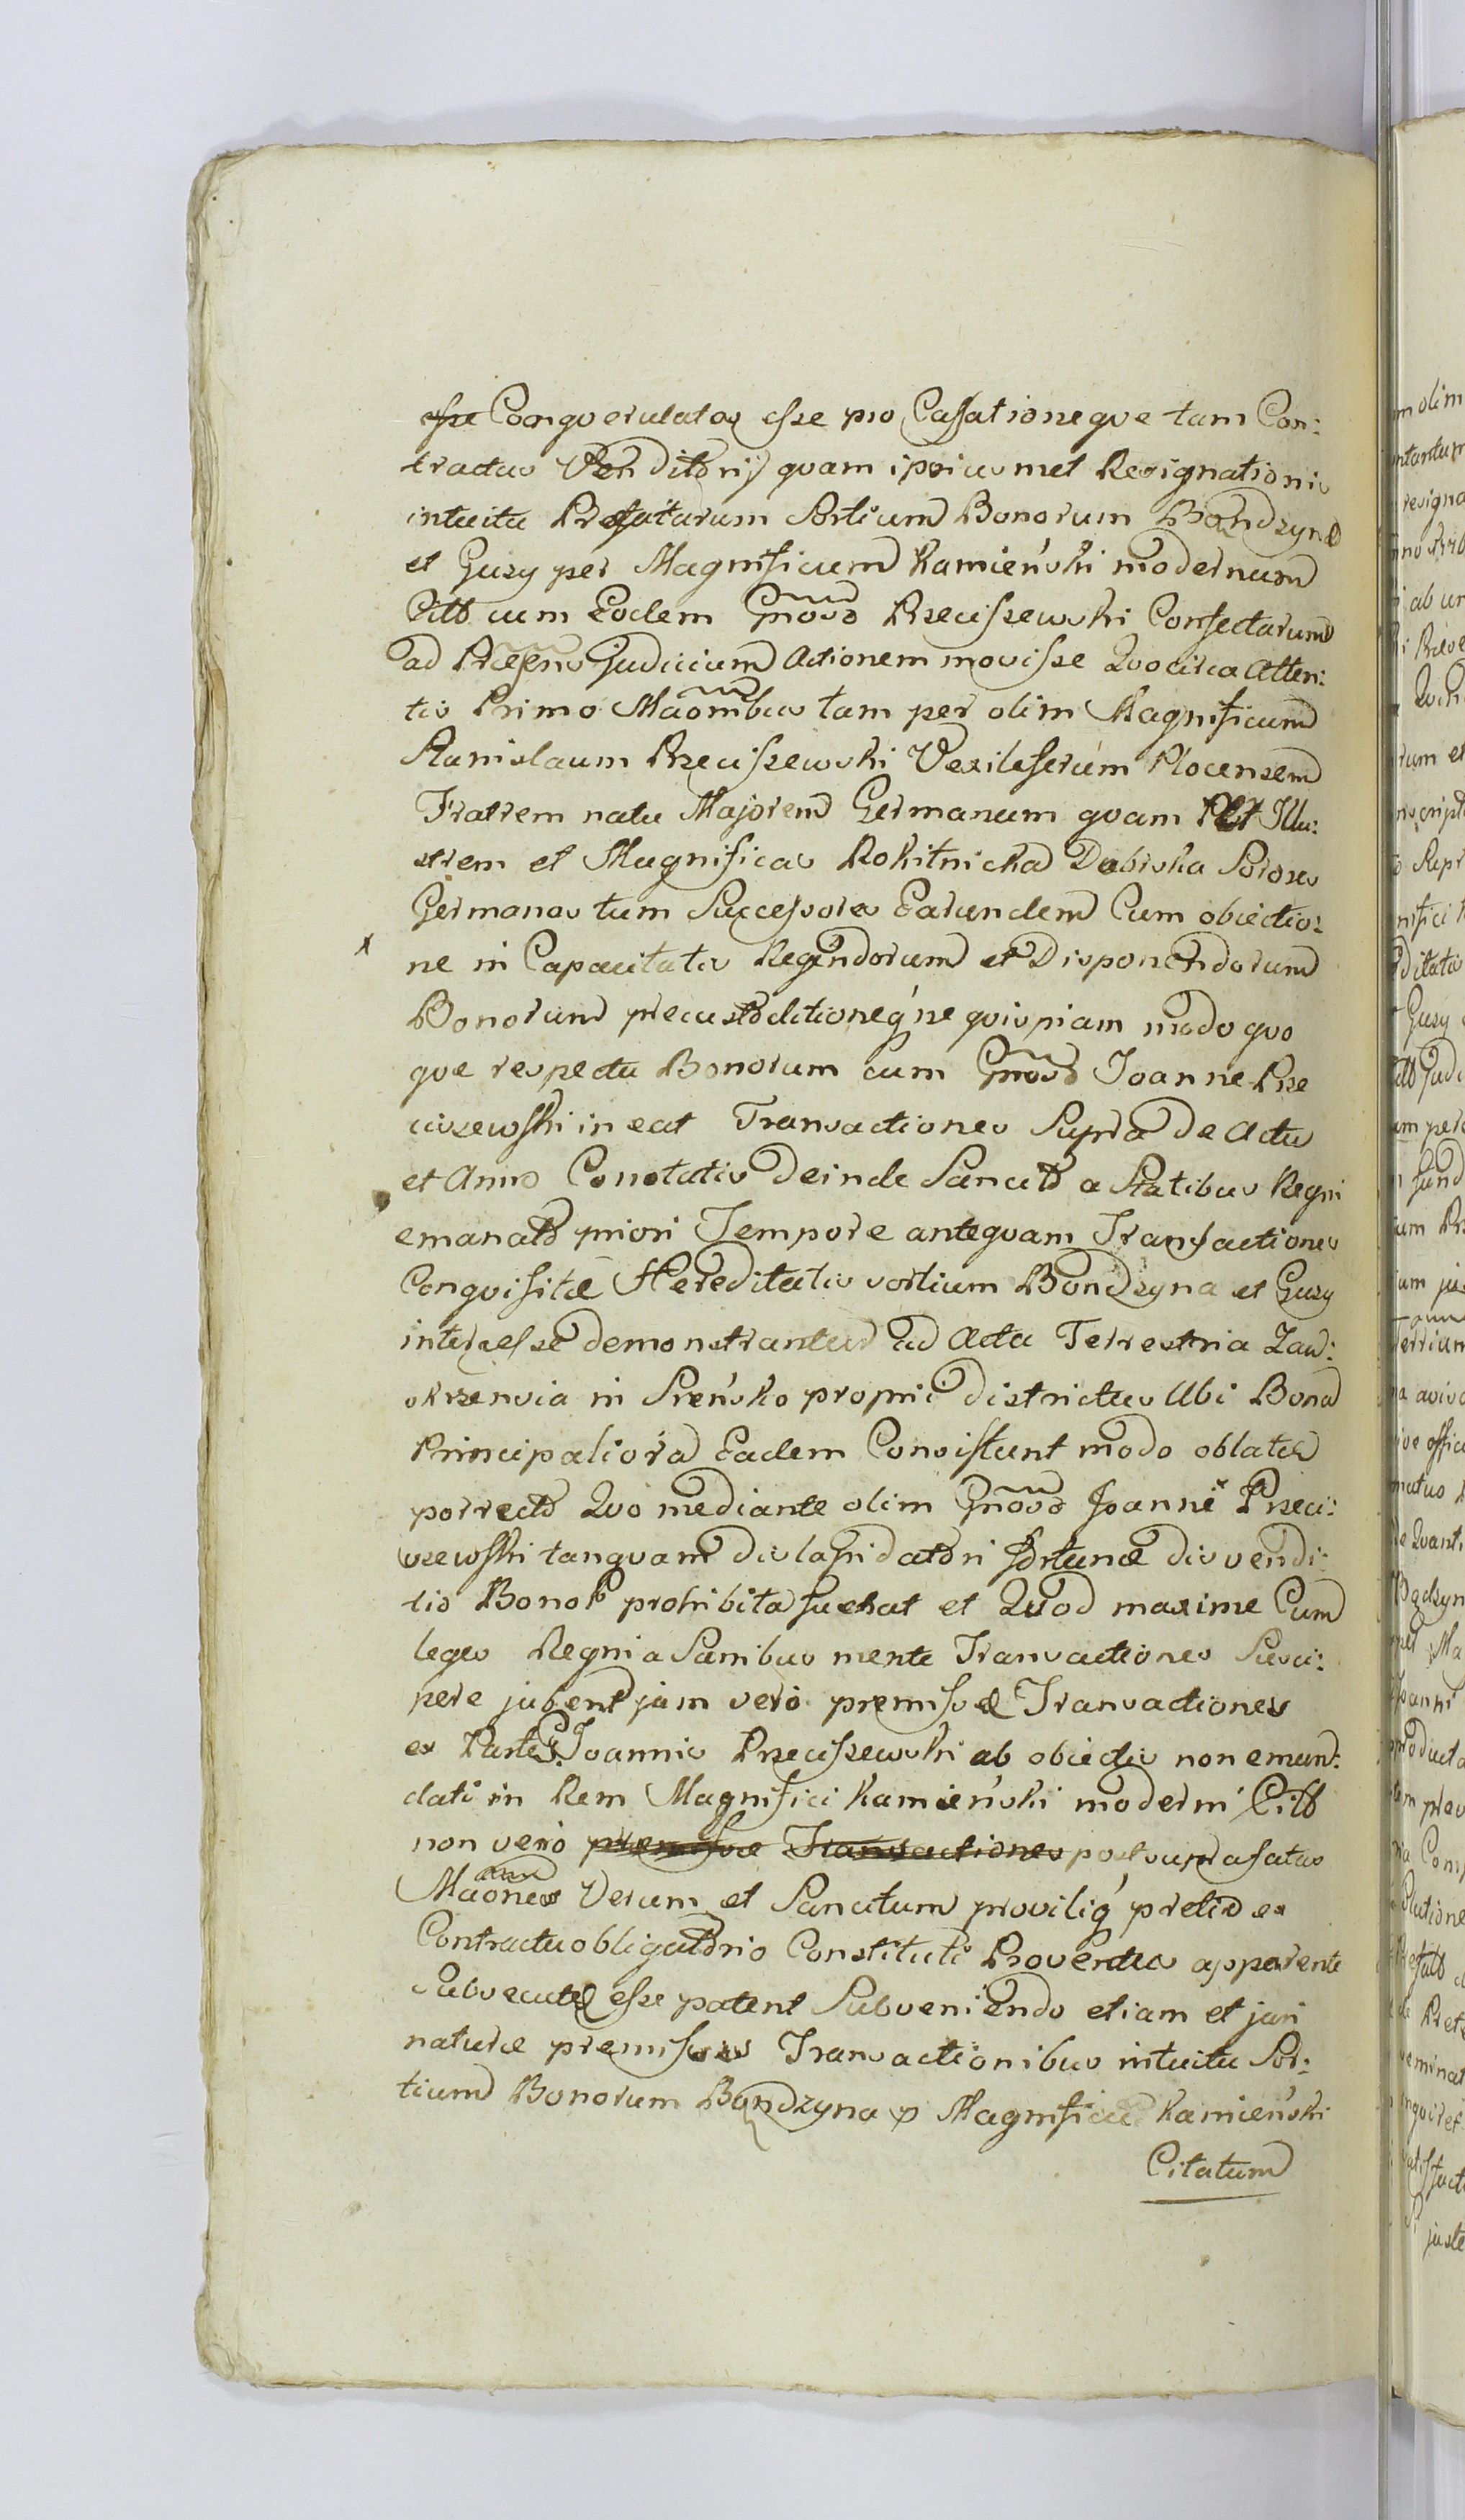 esse Conquerulatos esse pro Cassationeque tam Con:
tractus Venditorij quam ipsiusmet Resignationis
intuitu Prefatarum Sortium Bonorum Bandzyna
et Guzy per Magnificum Kamieński modernum
Citt cum Eodem Gnoso Przeciszewski Confectarum
ad Præsens Judicium Actionem movisse Quocirca Atten:
tis Primo Maombus tam per olim Magnificum
Stanislaum Przeciszewski Vexiliferum Plocensem
Fratrem natu Majorem Germanum quam Illu:
strem et Magnificas Rokitnicka Dabrska Sorores
Germanas tum Successores Earundem Cum obiectio:
ne in Capacitatis Regendorum et Disponendorum
Bonorum precustoditioneq ne quispiam modo quo
que respectu Bonorum cum Gnoso Joanne Prze
ciszewski in eat Transactiones Supra de Actu
et Anno Conotatis Deinde Sancito a Statibus Regni
emanato priori Tempore antequam Transactiones
Conquisitæ Hereditatis sortium Bondzyna et Guzy
interesse demonstrantur ad Acta Terrestria Zaw:
okrzensia in Sreńsko proprij districtus Ubi Bona
Principaliora Eadem Consistunt modo oblatæ
porrecto Quo mediante olim Gnoso Joanne Przeci:
szewski tanquam dislapidatori fortunæ disvendi:
tio Bonor prohibita fuerat et Quod maxime Cum
leges Regni a Sanibus mente Transactiones Susci:
pere jubent jam vero premissæ Transactiones
ex Parte G. Joannis Przeciszewski ab obiectis non emun:
dati in Rem Magnifici Kamieński moderni Citt
non vero premissæ Transactiones post suprafatas
Maones Verum et Sancitum proviliq pretio ex
Contractu obligatorio Constituti Proventus apparente
Subsecutæ esse patent Subveniendo etiam et juri
naturæ premissis Transactionibus intuitu Sor:
tium Bonorum Bandzyna p Magnificum Kamieński
Citatum